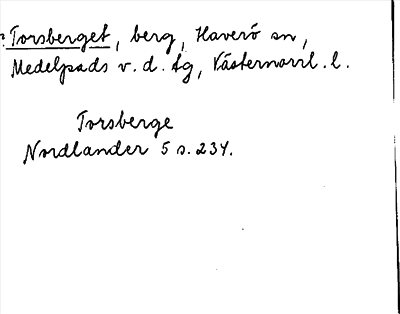 : Torsberget, berg, Haverö sn,
Medelpads v. d. tg, Västernorrl. l.
Torsberge
Nordlander 5 s. 234.